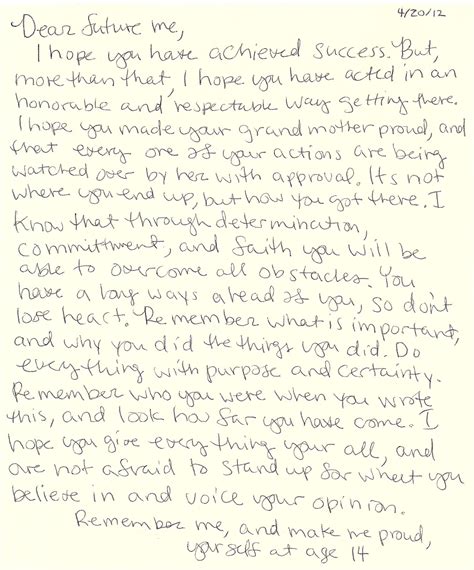 4/20/12
Dear future me,
I hope you have achieved success. But,
more than that, I hope you have acted in an
honorable and respectable way getting there.
I hope you made your grandmother proud, and
that every one of your actions are being
watched over by her with approval. Its not
where you end up, but how you got there. I
know that through determination,
committment, and faith you will be
able to overcome all obstacles. You
have a long ways ahead of you, so don't
lose heart. Remember what is important,
and why you did the things you did. Do
everything with purpose and certainty.
Remember who you were when you wrote
this, and look how far you have come. I
hope you give everything your all, and
are not afraid to stand up for what you
believe in and voice your opinion.
Remember me, and make me proud,
yourself at age 14